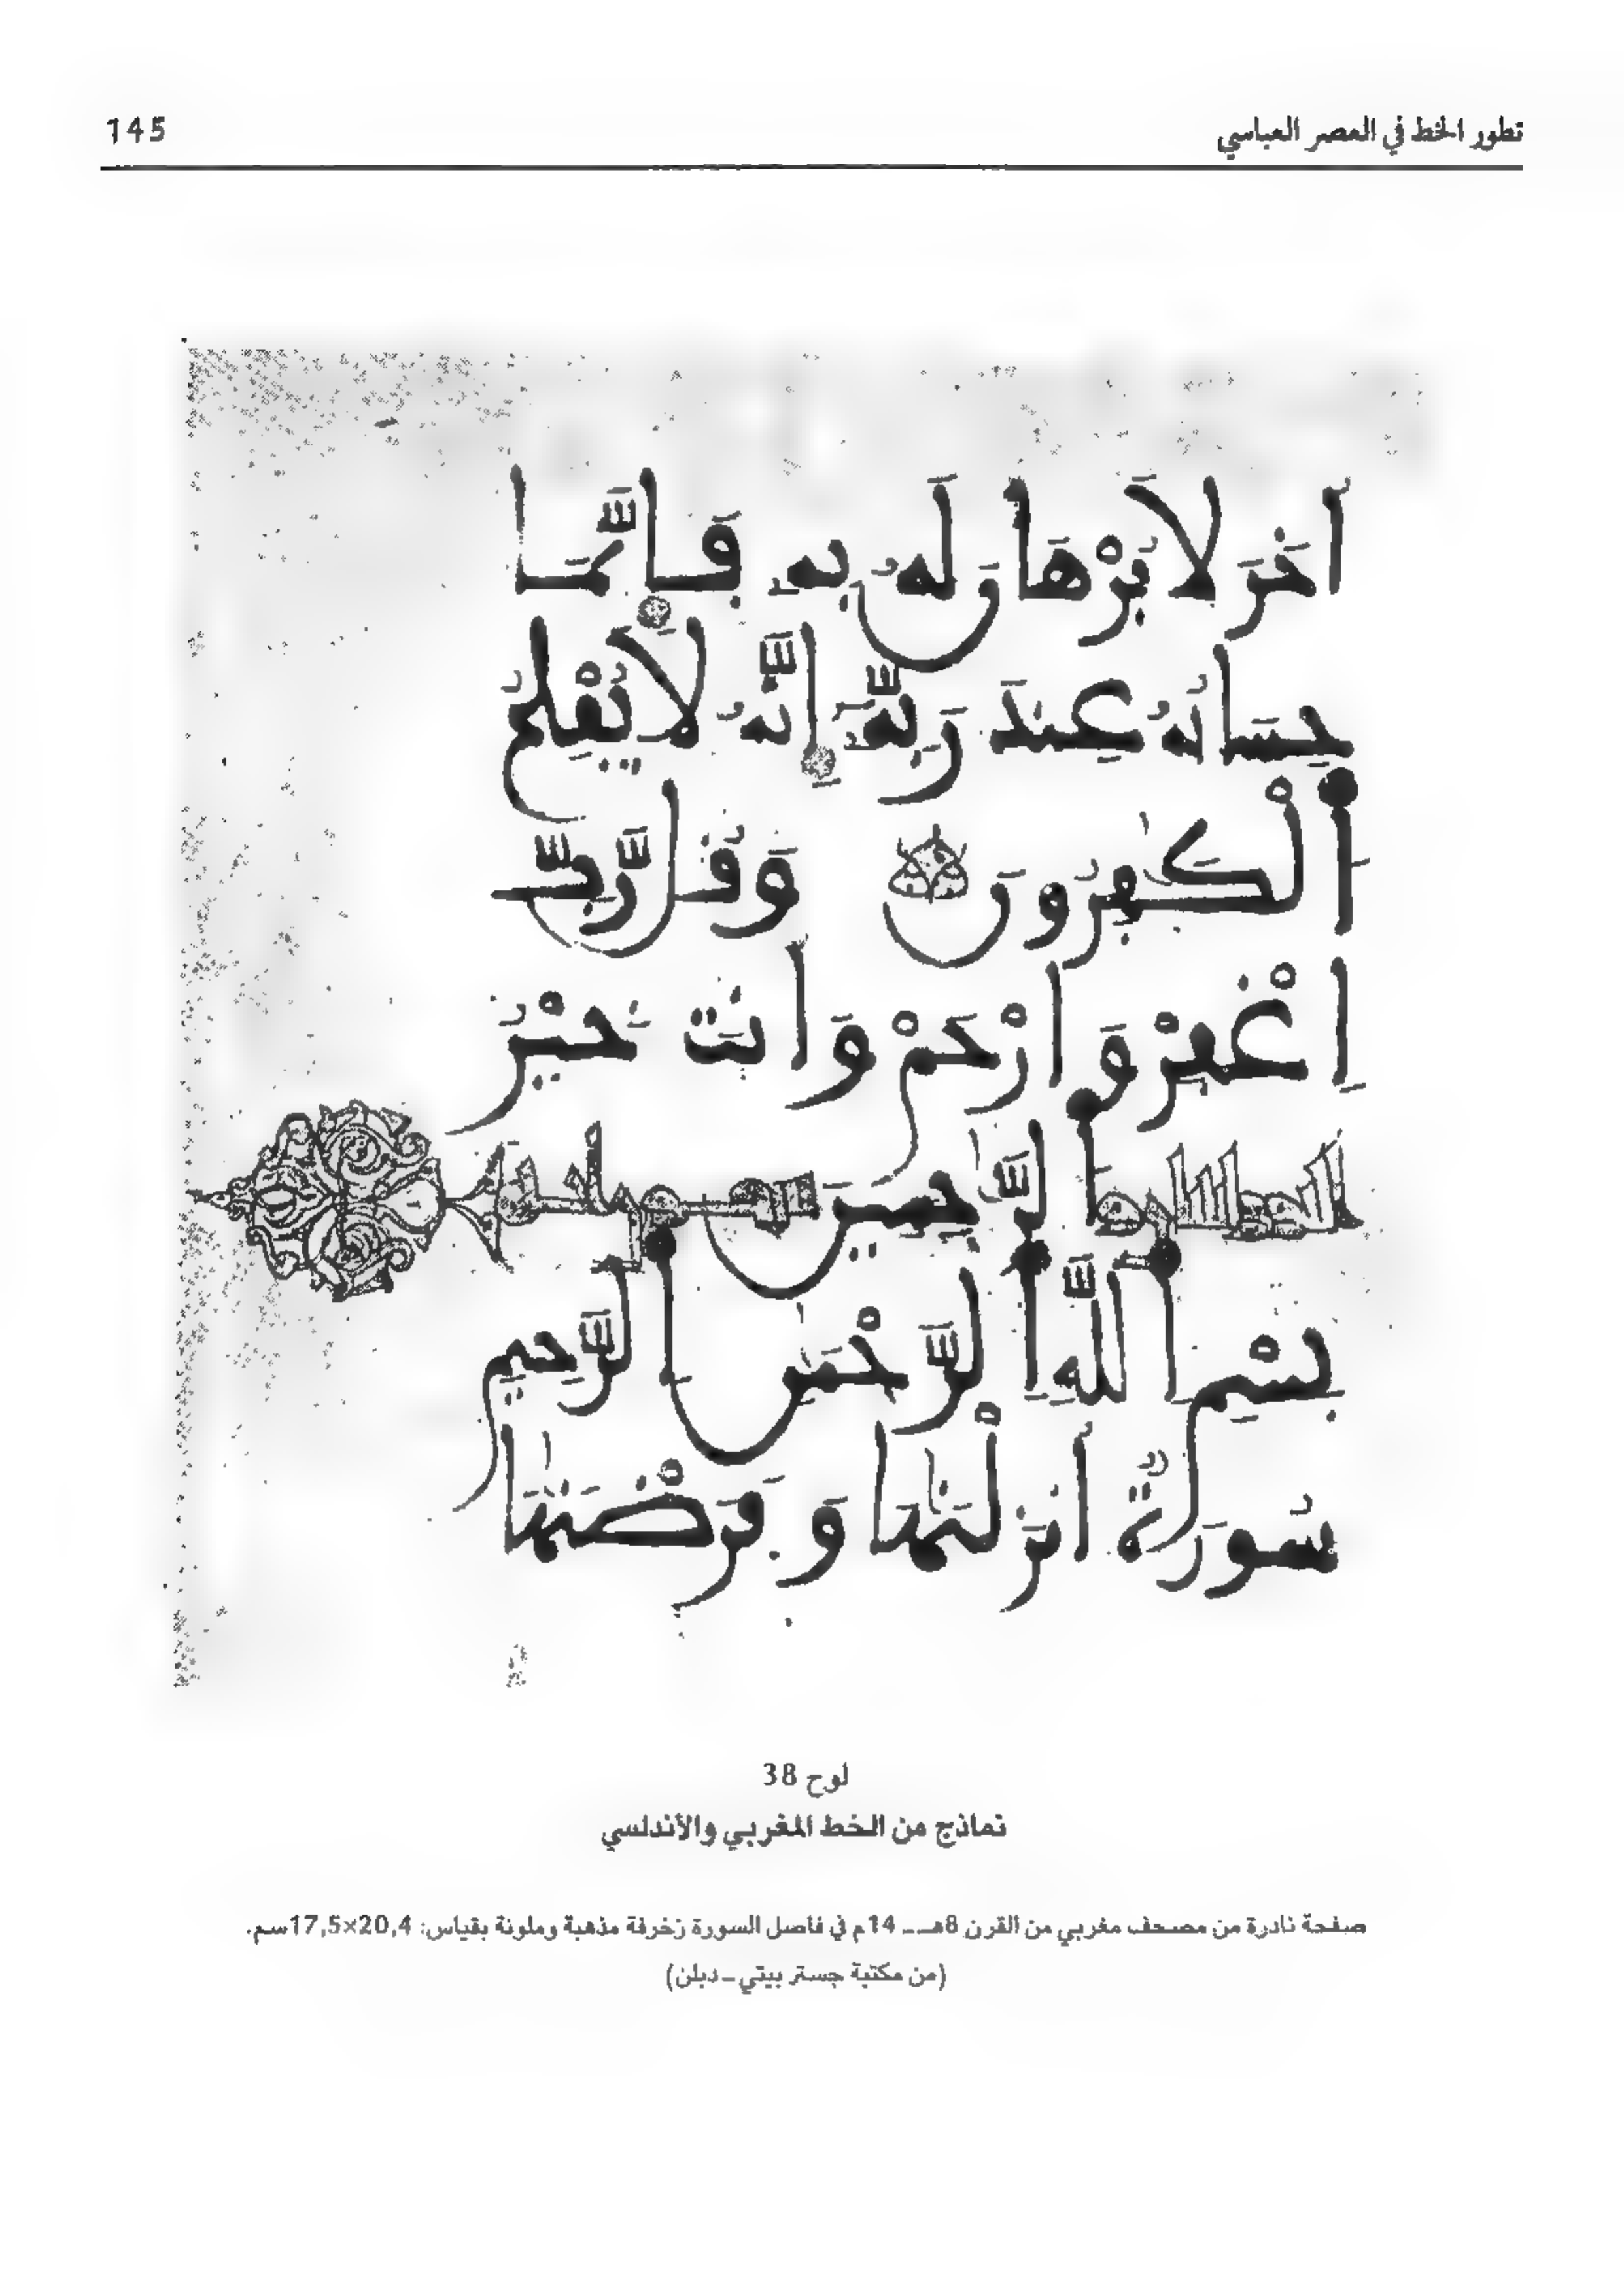 تطور الخط في العصر العباسي 145
ءَاخَرَ لَا بُرْهَٰنَ لَهُۥ بِهِۦ فَإِنَّمَا
حِسَابُهُۥ عِندَ رَبِّهِۦٓ إِنَّهُۥ لَا يُفْلِحُ
ٱلْكَٰفِرُونَ وَقُل رَّبِّ
ٱغْفِرْ وَٱرْحَمْ وَأَنتَ خَيْرُ
ٱلرَّٰحِمِينَ
بِسْمِ ٱللَّهِ ٱلرَّحْمَٰنِ ٱلرَّحِيمِ
سُورَةٌ أَنزَلْنَٰهَا وَفَرَضْنَٰهَا
لوح 38
نماذج من الخط المغربي والأندلسي
صفحة نادرة من مصحف مغربي من القرن 8هـ ـ 14م في فاصل السورة زخرفة مذهبة وملونة بقياس: 20,4×17,5سم.
(من مكتبة جستر بيتي ـ دبلن)